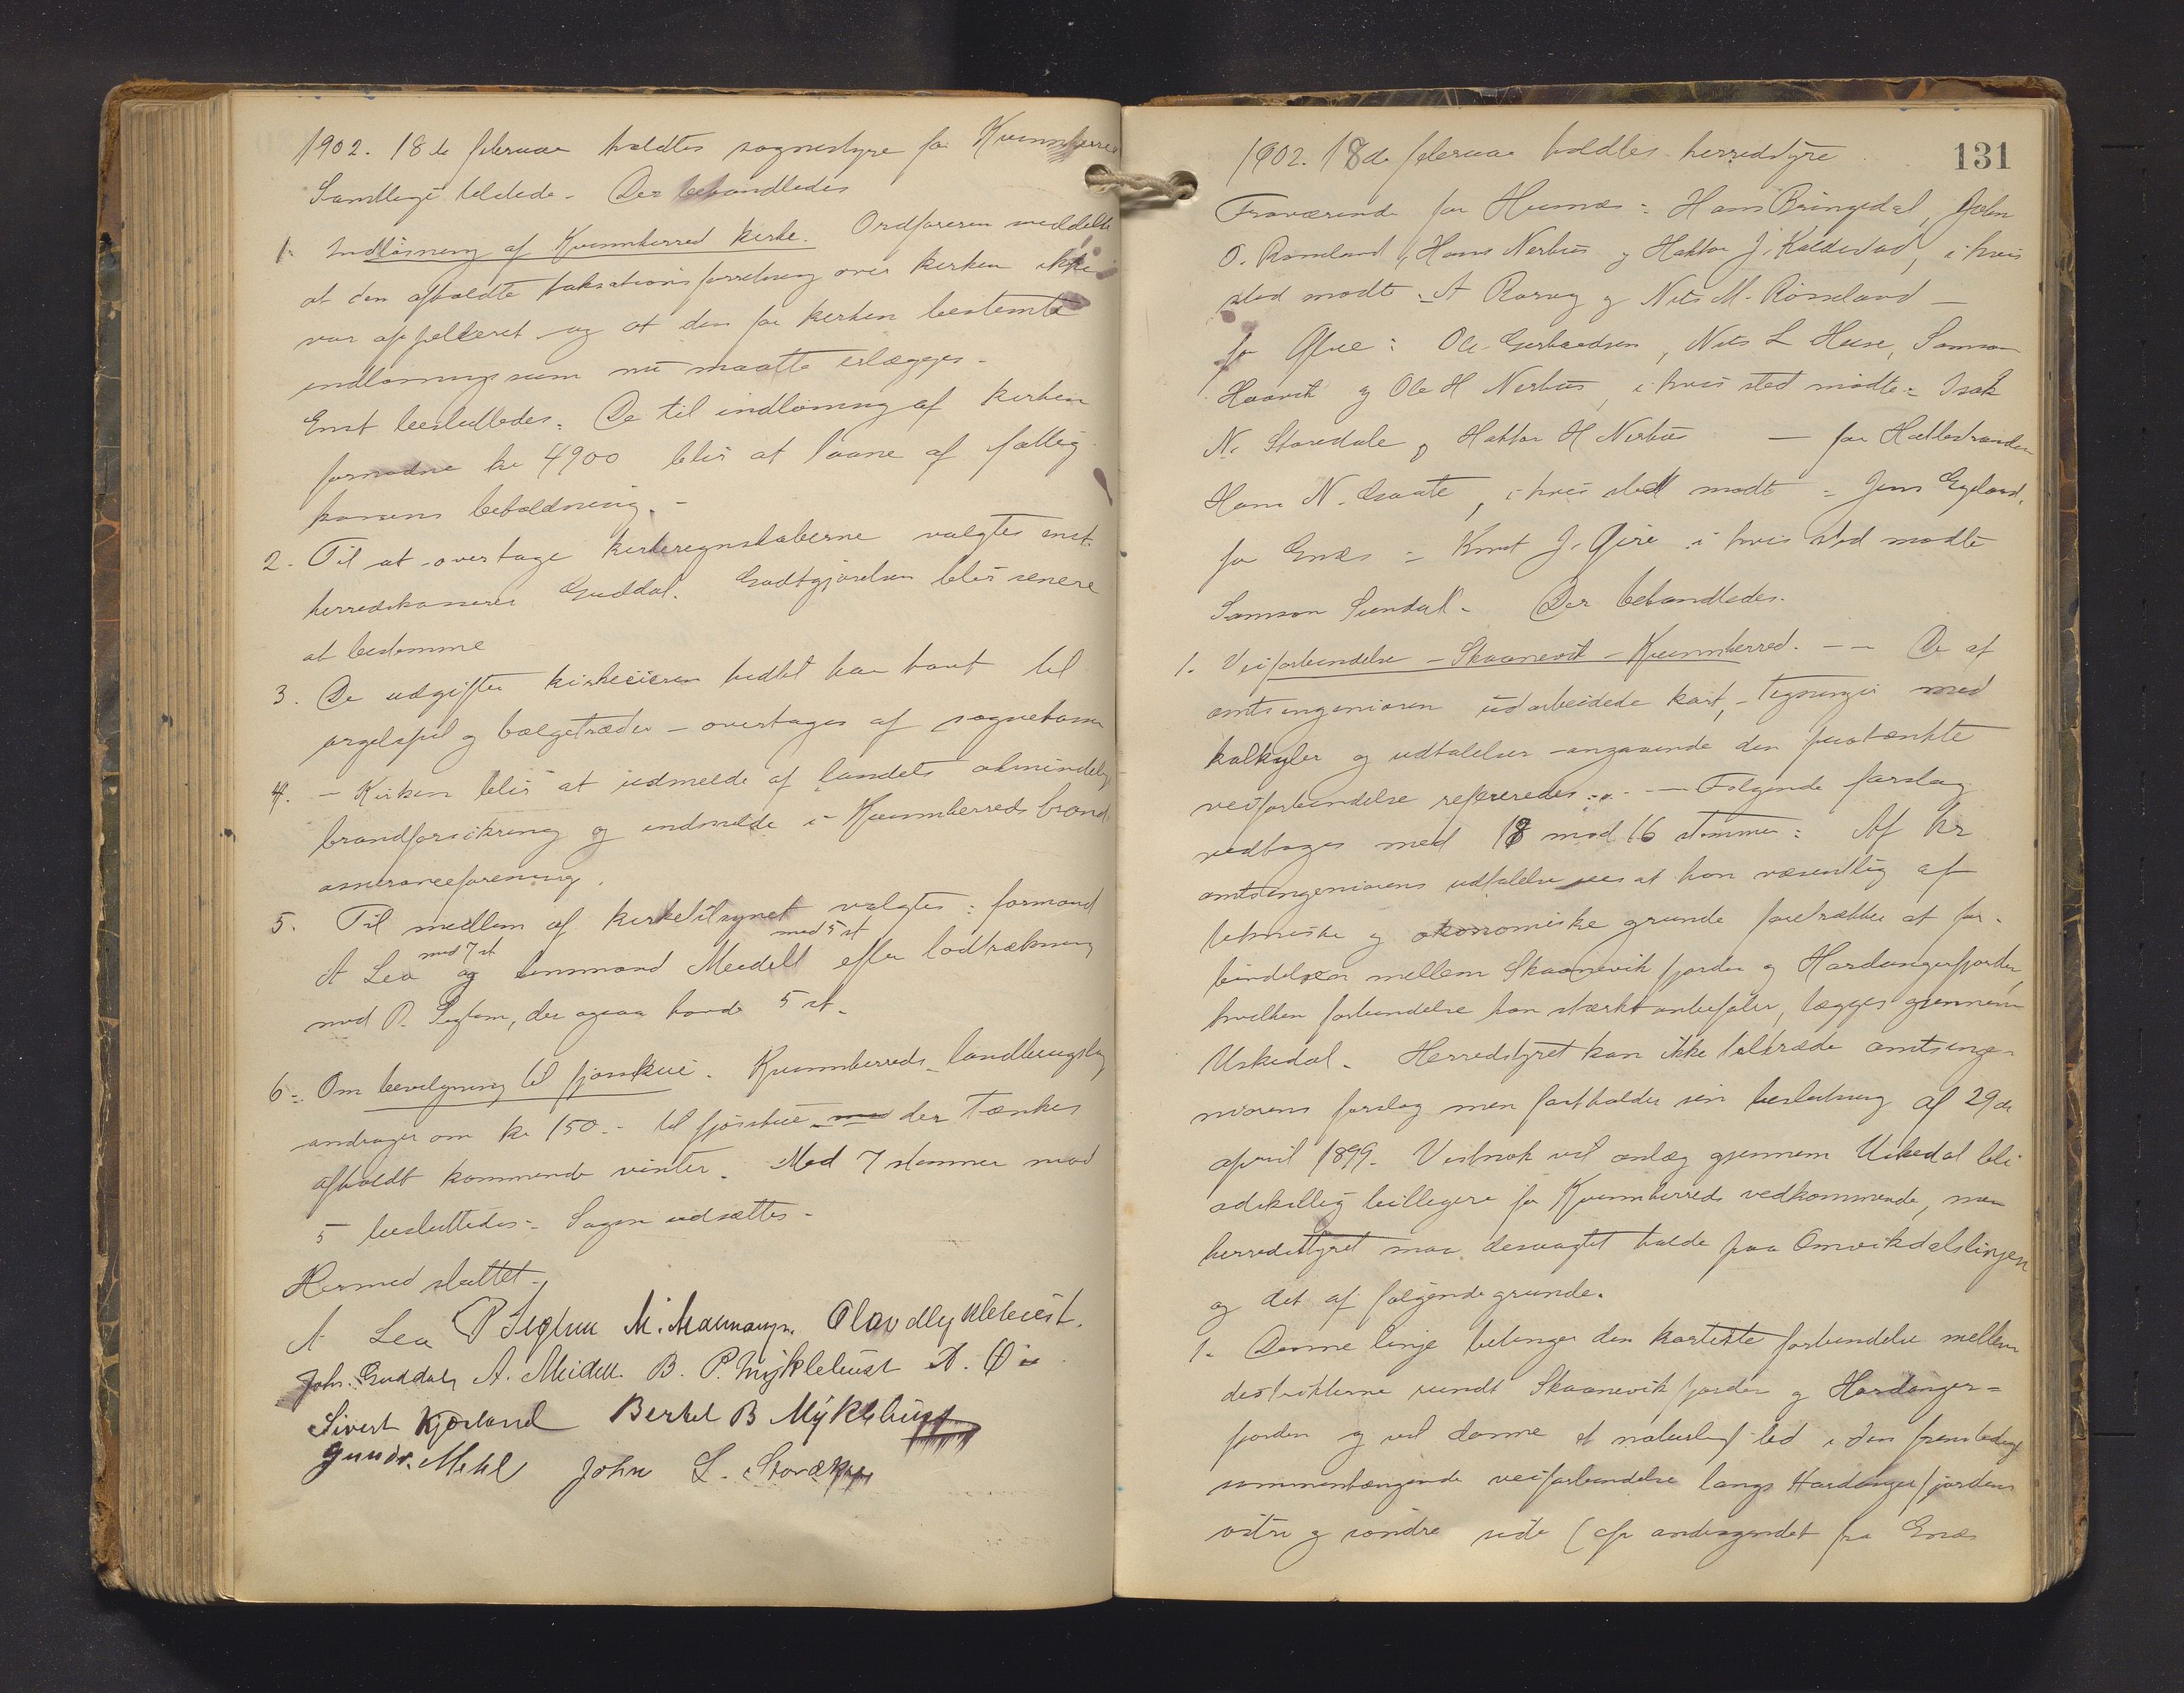 1902. 18de februar holdtes sognestyre for Kvinnherred
Samtlige tilstede. Der behandledes
1. Indløsning af Kvinnherred kirke. Ordføreren meddelte
at den afholdte taksationsforretning over kirken ikke
var appelleret og at den for kirken bestemte
indløsningssum nu maatte erlægges.
Enst besluttedes: De til indløsning af kirken
fornødne kr 4900 blir at laane af fattig
kassens beholdning.
2. Til at overtage kirkeregnskaberne valgtes enst.
herredskasserer Guddal. Godtgjørelsen blir senere
at bestemme
3. De udgifter kirkeeieren hidtil har havt til
orgelspil og bælgetræder - overtages af sognekassen
4. - Kirken blir at udmelde af landets almindelige
brandforsikring og indmelde i Kvinnherreds brand
assuranceforening.
5. Til medlem af kirketilsynet valgtes: formand
med 7 st med 5 st
A Lea og lensmand Meidell efter lodtrækning
med P. Seglem, der ogsaa havde 5 st.
6. Om bevilgning til fjøsskue. Kvinnherreds landbrugslag
andrager om kr 150.- til fjøsskue der tænkes
afholdt kommende vinter. Med 7 stemmer mod
5 besluttedes: Sagen udsættes.
Hermed sluttet.
A Lea P Seglem M. Malmanger. Olav Myklebust.
John Guddal, A. Meidell. B. P. Myklebust A. Øie
Sivert Kjærland Bertel B Myklebust
Gunnr. Mehl John L.
131
1902. 18de februar holdtes herredstyre
Fraværende for Husnes: Hans Bringedal, John
O. Rømsland, Hans Nerhus og Haktor J. Kaldestad, i hvis
sted mødte A Rørvag og Nils M. Røssland -
for Ølve: Ole Gerhardsen, Nils L Huse, Samson
Haavik og Ole H Nerhus, i hvis sted mødte: Isak
N. Storedale og Haktor H Nerhus - for Hatlestranden
Hans N. , i hvis sted mødte: Jens Egeland,
for Enes: Knut J. Gjere i hvis sted mødte
Samson Sundal. Der behandledes.
1. Veiforbindelse - Skaanevik - Kvinnherred. - - De af
amtsingeniøren udarbeidede kart, - Tegninger med
kalkyler og udtalelser angaaende den paatænkte
veiforbindelse refereredes. - Følgende forslag
vedtoges med 18 mod 16 stemmer: Af hr
amtsingeniørens udtalelse sees at han væsentlig af
tekniske og økonomiske grunde foretrækker at for-
bindelsen mellem Skaanevikfjorden og Hardangerfjorden,
hvilken forbindelse han stærkt anbefaler, lægges gjennem
Uskedal. Herredstyret kan ikke tiltræde amtsinge-
niørens forslag men fastholder sin beslutning af 29de
april 1899. Vistnok vil anlæg gjennem Uskedal bli
adskillig billigere for Kvinnherreds vedkommende, men
herredstyret maa desuagtet holde paa Omvikdalslinjen
og det af følgende grunde.
1. Denne linje betinger den korteste forbindelse mellem
distrikterne rundt Skaanevikfjorden og Hardanger-
fjorden og vil danne et naturlig led i den fremtidige
sammenhængende veiforbindelse langs Hardangerfjordens
østre og søndre side (cfr andragendet fra Enes